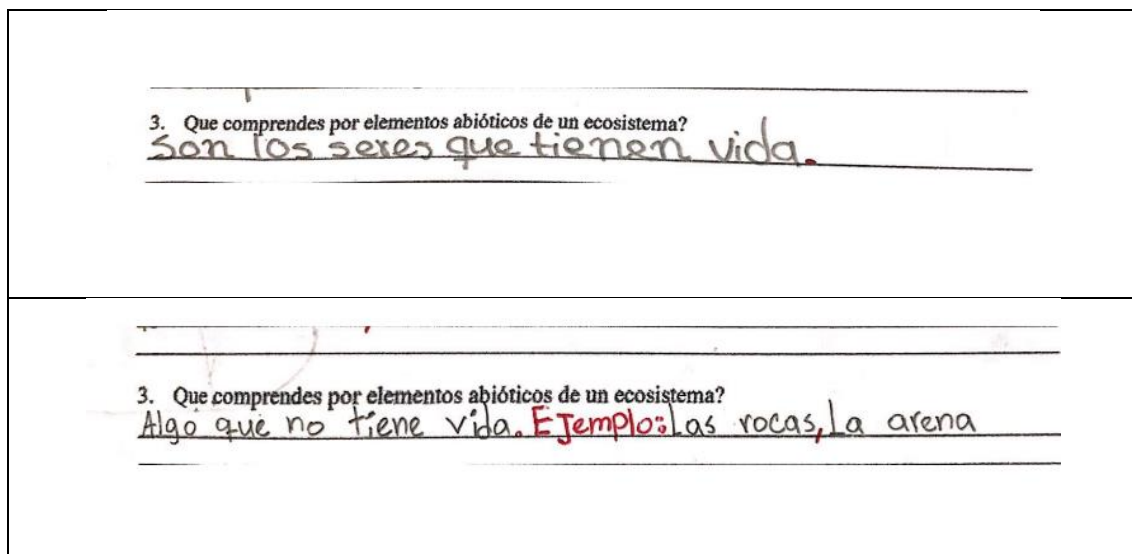 3. Que comprendes por elementos abióticos de un ecosistema?
Son los seres que tienen vida.
3. Que comprendes por elementos abióticos de un ecosistema?
Algo que no tiene vida. EJemplo: Las rocas, La arena